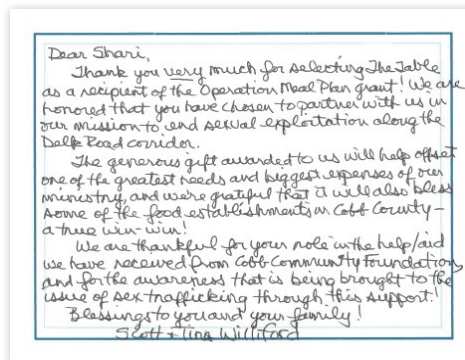 Dear Shari,
Thank you very much for selecting The Table
as a recipient of the Operation Meal Plan grant! We are
honored that you have chosen to partner with us in
our mission to end sexual exploitation along the
Delk Road corridor.
The generous gift awarded to us will help offset
one of the greatest needs and biggest expenses of our
ministry, and we're grateful that it will also bless
some of the food establishments in Cobb County –
a true win-win!
We are thankful for your role in the help/aid
we have received from Cobb Community Foundation,
and for the awareness that is being brought to the
issue of sex trafficking through this support!
Blessings to you and your family!
Scott + Tina Williford